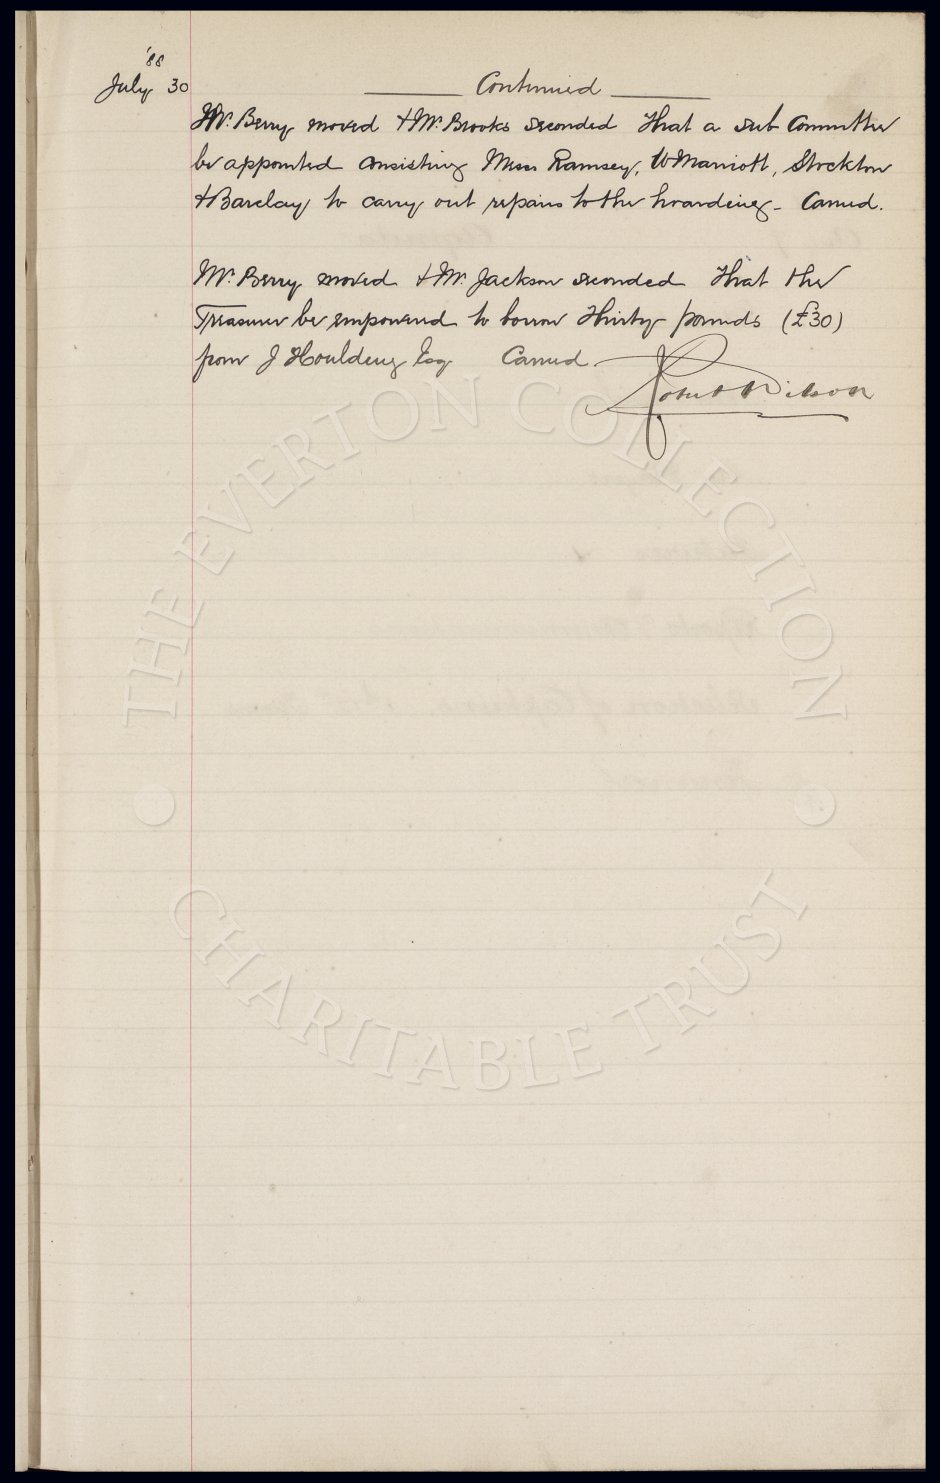 '88
July 30
Continued
Mr. Berry moved & Mr. Brooks seconded that a sub Committee
be appointed consisting Messrs Ramsey, W Marriott, Stockton
& Barclay to carry out repairs to the hoarding - Carried.
Mr. Berry moved & Mr. Jackson seconded that the
Treasurer be empowered to borrow thirty pounds (£30)
from J Houlding Esq Carried.
Robert Wilson
THE EVERTON COLLECTION
CHARITABLE TRUST